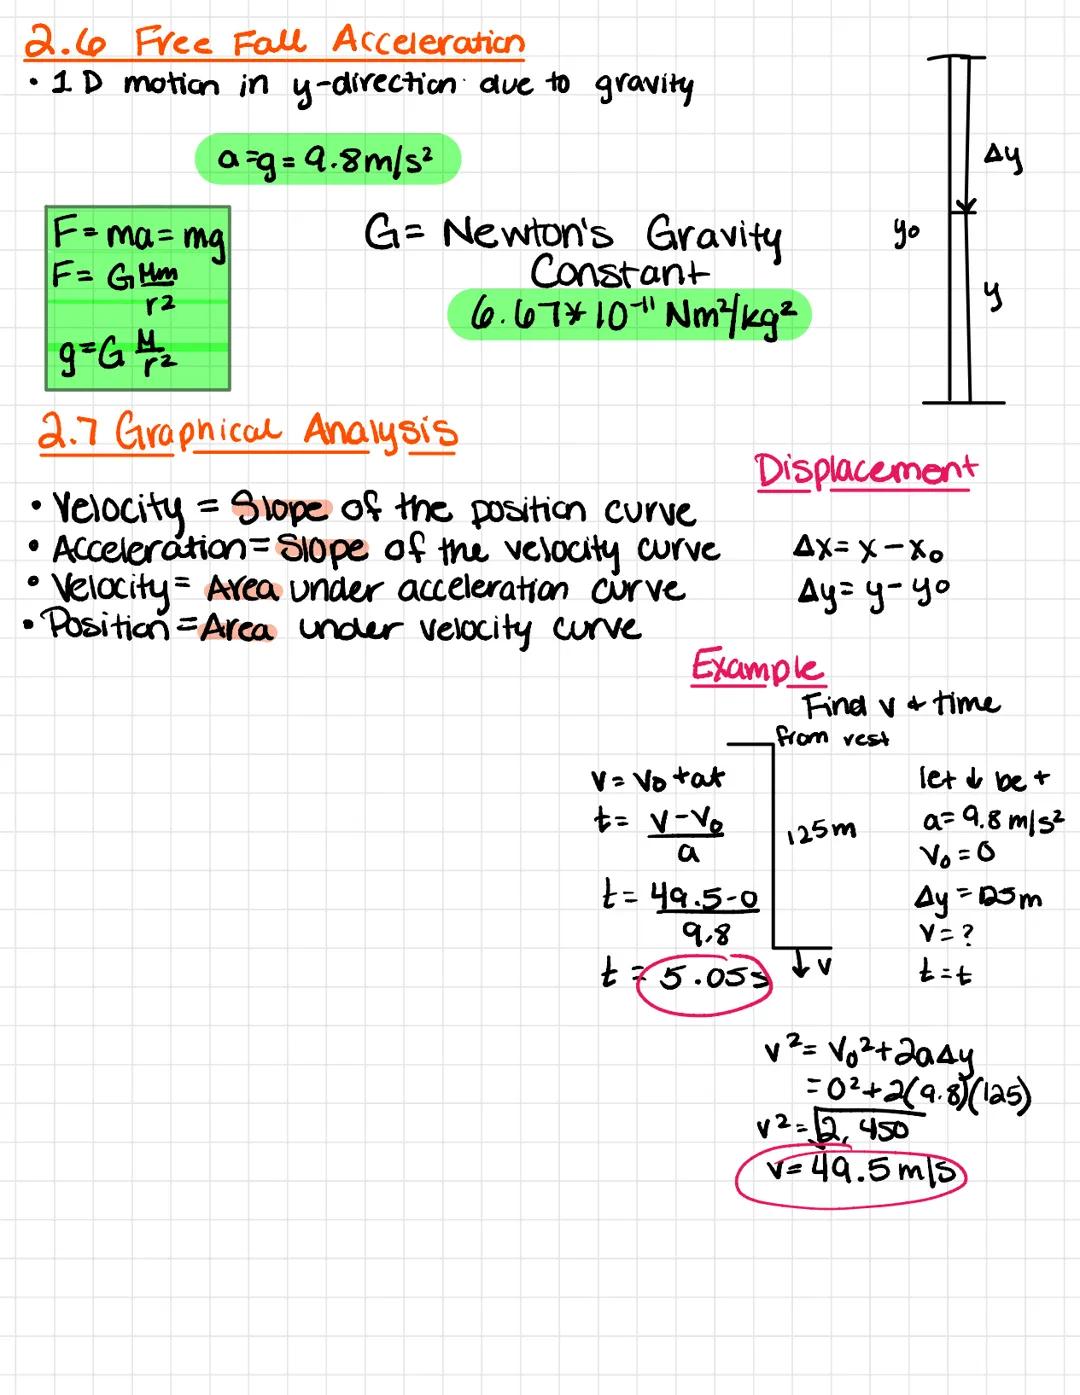 2.6 Free Fall Acceleration
• 1D motion in y-direction due to gravity
a=g=9.8m/s²
Δy
F=ma=mg
F= G Mm/r²
g=G M/r²
G= Newton's Gravity
Constant
6.67*10⁻¹¹ Nm²/kg²
y₀
y
2.7 Graphical Analysis
• Velocity = Slope of the position curve
• Acceleration= Slope of the velocity curve
• Velocity= Area under acceleration curve
• Position=Area under velocity curve
Displacement
Δx= x-x₀
Δy= y-y₀
Example
Find v & time
from rest
v= v₀+at
t= v-v₀/a
t= 49.5-0/9.8
t= 5.05s
125m
↓v
let ↓ be +
a= 9.8m/s²
v₀=0
Δy=125m
v=?
t=t
v²= v₀²+2aΔy
=0²+2(9.8)(125)
v²=√2,450
v=49.5m/s